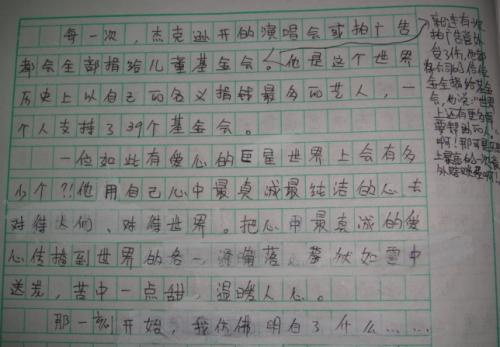 每一次，杰克逊开的演唱会或拍广告
都会全部捐给儿童基金会。他是这个世界
历史上以自己的名义捐钱最多的艺人，一
个人支持了39个基金会。
一位如此有爱心的巨星世界上会有多
少个？！他用自己心中最真诚最纯洁的心去
对待人们、对待世界。把心中最真诚的爱
心传播到世界的各一个角落，
送炭，苦中一点甜，温暖人心。
那一刻开始，我仿佛明白了什么……
还有一次
拍广告
伤，他
把
全捐给基金
会，他说：“世界
上还有更多的
要帮助的人
啊！”那可是历史
上最高的一次意
外赔赏啊！